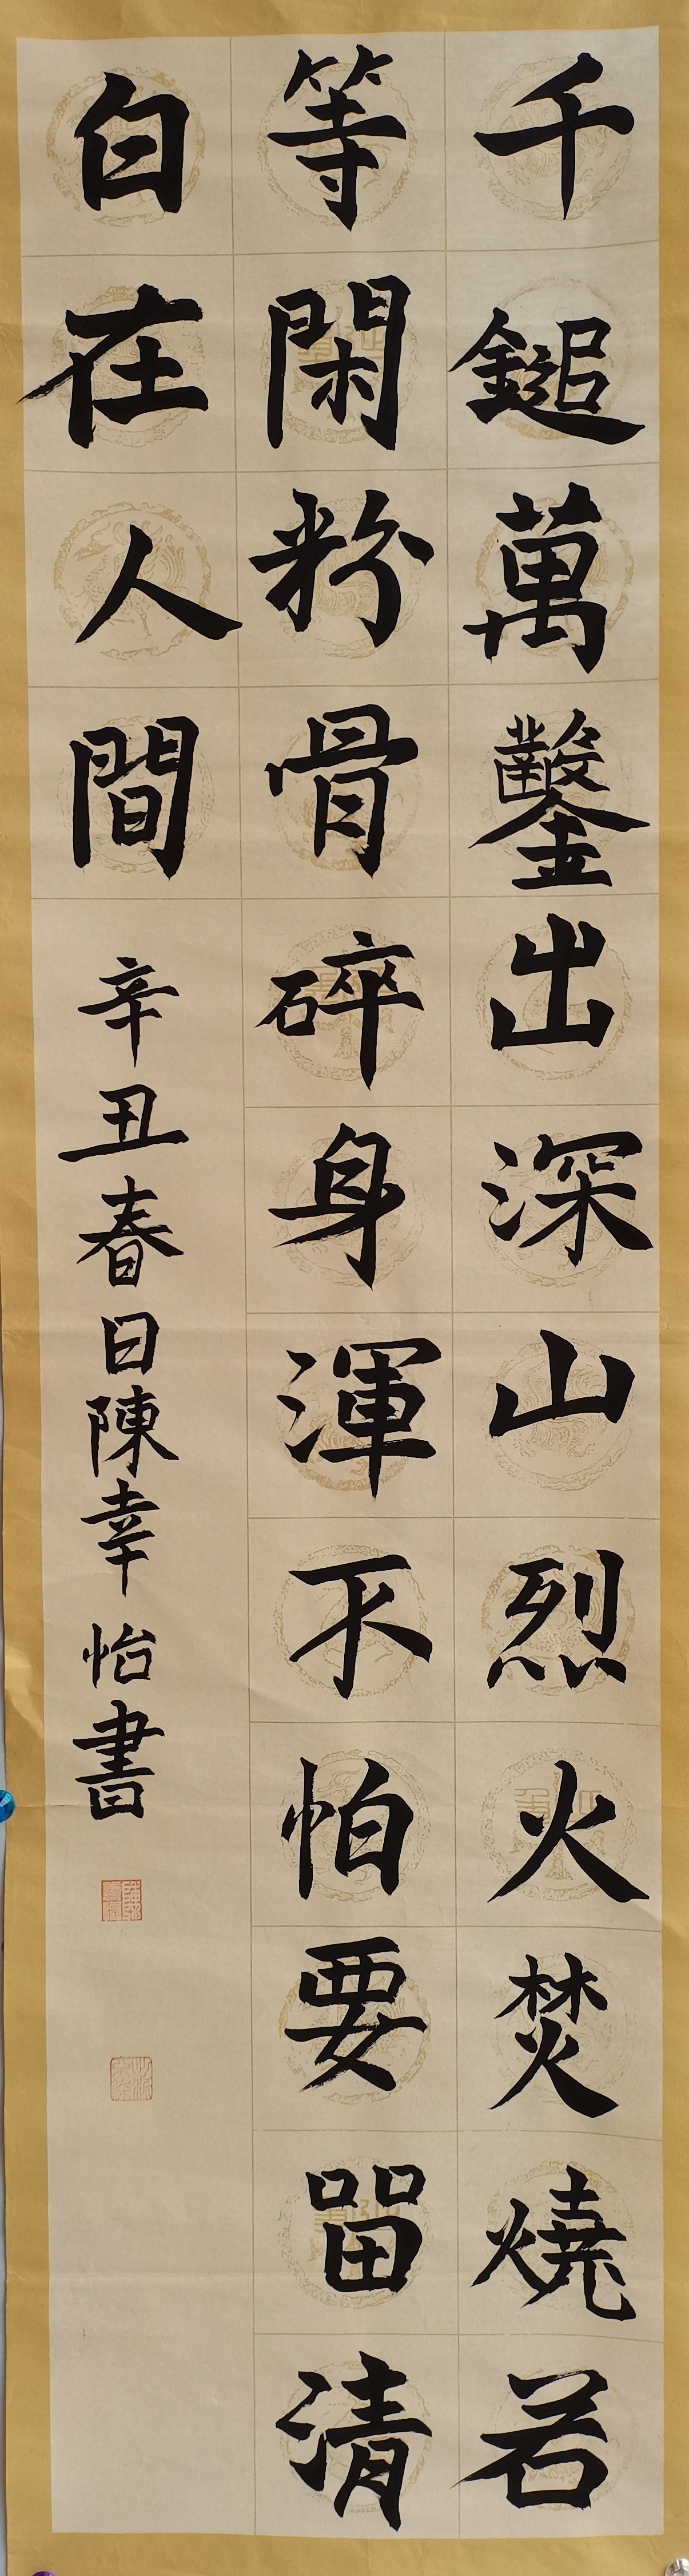 千鎚萬鑿出深山烈火焚燒若
等閑粉骨碎身渾不怕要留清
白在人間
辛丑春日陳幸怡書